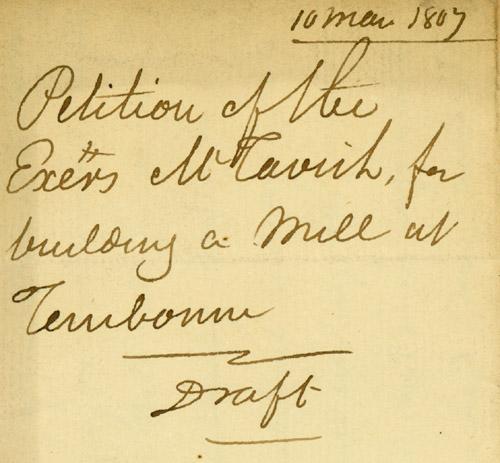 10 Mar 1807
Petition of the
Exērs McTavish, for
building a Mill at
Terrebonne
Draft